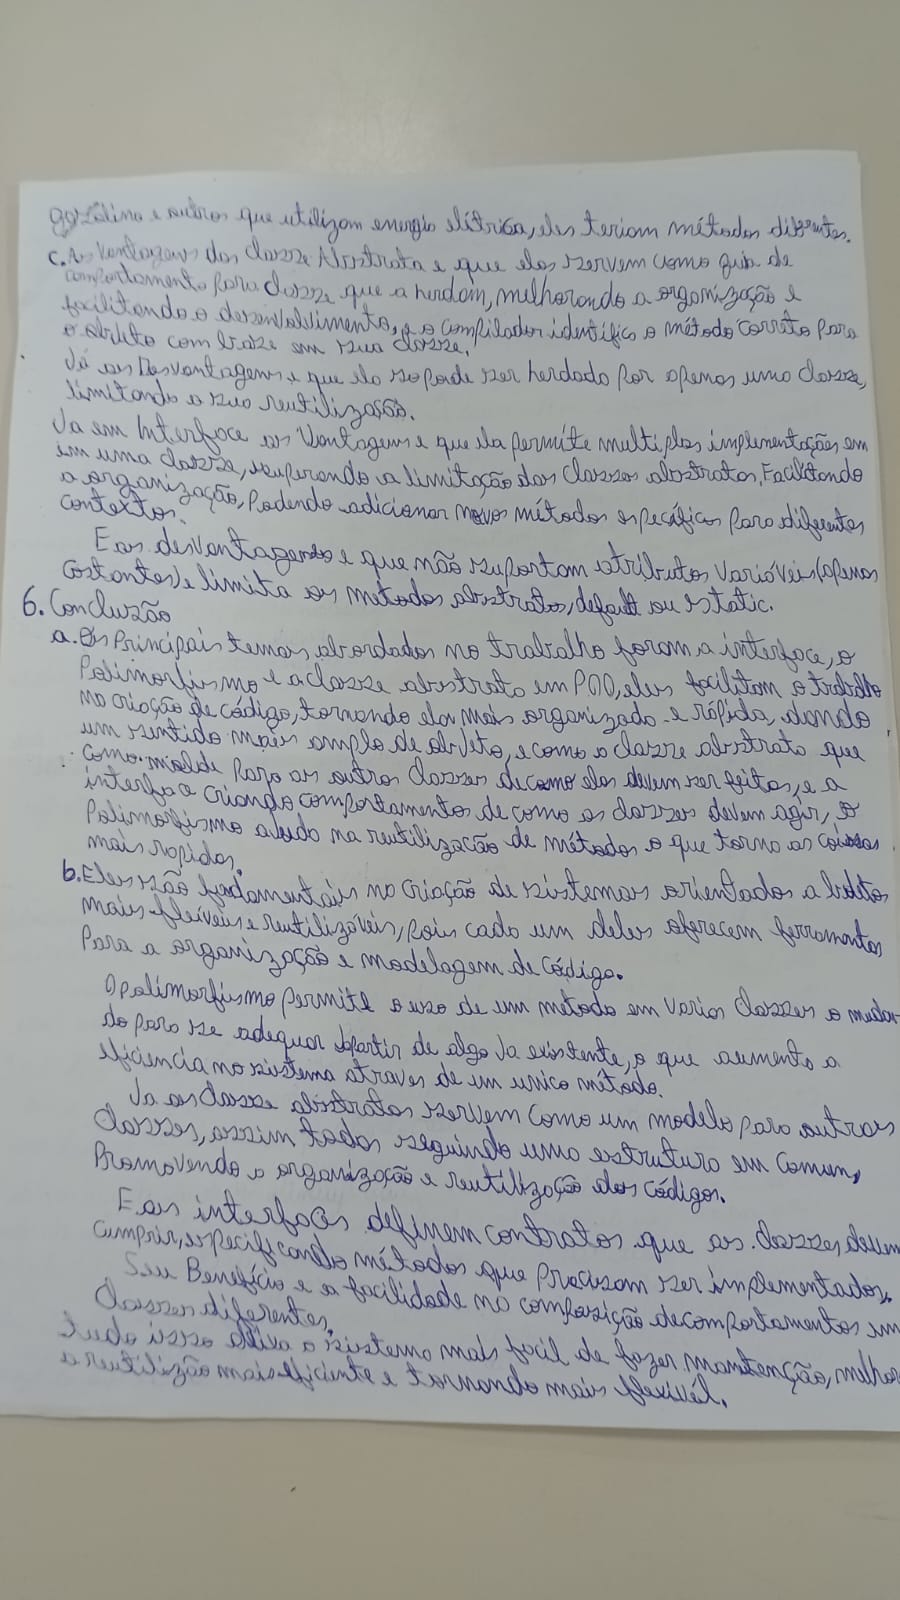 gazolina e outros que utilizam energia elítrica, eles teriam métodos diferentes.
c. As Vantagens das classe Abstrata e que elas servem como guia de
comportamento para classe que a herdam, melhorando a organização e
facilitando o desenvolvimento, e o compilador identifica o método correto para
o objeto com base em sua classe.
Já as Desvantagens e que ela so pode ser herdado por apenas uma classe,
limitando a sua reutilização.
Ja em Interface as Vantagens e que ela permite multiplas implementações em
em uma classe, superando a limitação das classes abstratas, Facilitando
a organização, Podendo adicionar novos métodos específicos para diferentes
contextos.
E as desvantagens e que não suportam atributos variáveis (apenas
costantes) e limita os métodos abstratos, default ou static.
6. Concluzão
a. Os Principais temas abordados no trabalho foram a interface, o
Polimorfismo e a classe abstrata em POO, eles facilitam o trabalho
na criação de código, tornando elas mais organizado e rápida, dando
um sentido mais amplo de objeto, e como a classe abstrata que
como molde para as outras classes de como elas devem ser feitas, e a
interface criando comportamentos de como as classes devem agir, o
Polimorfismo ajuda na reutilização de métodos o que torna as coisas
mais rapidas.
b. Eles são fundamentais na criação de sistemas orientados a objetos
mais fleíveis e reutilizáveis, pois cada um deles oferecem ferramentas
Para a organização e modelagem de código.
O polimorfismo permite o uso de um método em varias classes o mudan-
do para se adequar apartir de algo ja existente, o que aumenta a
eficiencia no sistema atraves de um unico método.
Ja as classe abstratas servem como um modelo para outras
classes, assim todas seguindo uma estrutura em comum,
Promovendo a organização e reutilização dos códigos.
E as interfaces definem contratos que as classes devem
cumprir, especificando métodos que precisam ser implementados.
Seu Benefício e a facilidade na composição de comportamentos em
classes diferentes.
tudo isso deixa o sistema mais facil de fazer manutenção, melhor
a reutilizão mais eficiente e tornando mais flexivél.